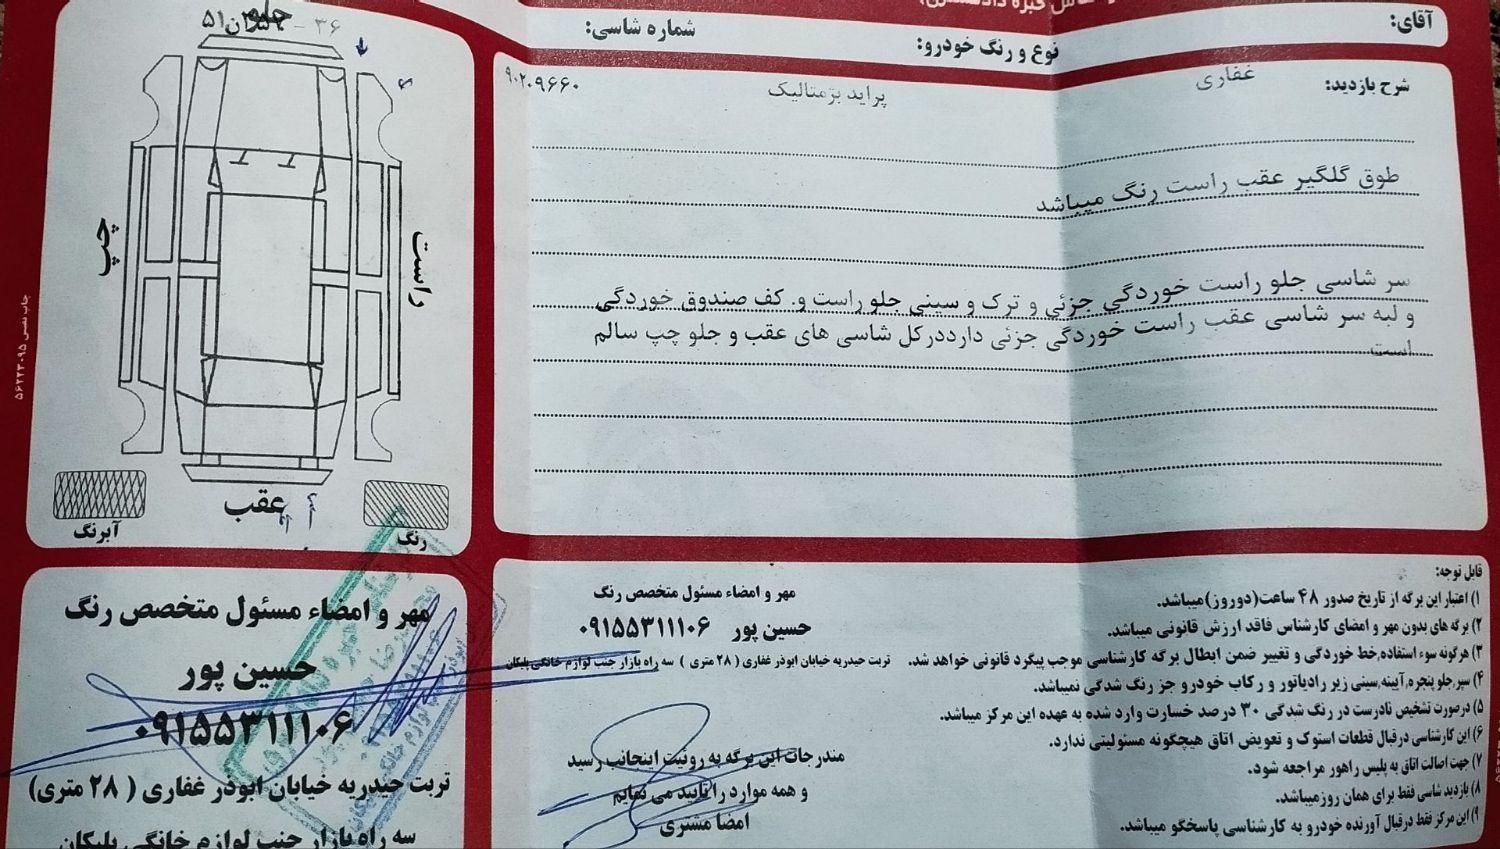 آقای:
شماره شاسی:
نوع و رنگ خودرو:
شرح بازدید:
غفاری
پراید بژمتالیک
۹۰۲۰۹۶۶۰
طوق گلگیر عقب راست رنگ میباشد
سر شاسی جلو راست خوردگی جزئی و ترک و سینی جلو راست و. کف صندوق خوردگی
و لبه سر شاسی عقب راست خوردگی جزئی دارددرکل شاسی های عقب و جلو چپ سالم
است
جلو
چپ
راست
عقب
آبرنگ
رنگ
چاپ نفیس ۵۶۲۲۳۰۹۵
قابل توجه:
۱) اعتبار این برگه از تاریخ صدور ۴۸ ساعت(دوروز)میباشد.
۲) برگه های بدون مهر و امضای کارشناس فاقد ارزش قانونی میباشد.
۳) هرگونه سوء استفاده,خط خوردگی و تغییر ضمن ابطال برگه کارشناسی موجب پیگرد قانونی خواهد شد.
۴) سپر,جلو پنجره,آیینه,سینی زیر رادیاتور و رکاب خودرو جز رنگ شدگی نمیباشد.
۵) درصورت تشخیص نادرست در رنگ شدگی ۳۰ درصد خسارت وارد شده به عهده این مرکز میباشد.
۶) این کارشناسی درقبال قطعات استوک و تعویض اتاق هیچگونه مسئولیتی ندارد.
۷) جهت اصالت اتاق به پلیس راهور مراجعه شود.
۸) بازدید شاسی فقط برای همان روزمیباشد.
۹) این مرکز فقط درقبال آورنده خودرو به کارشناسی پاسخگو میباشد.
مهر و امضاء مسئول متخصص رنگ
حسین پور ۰۹۱۵۵۳۱۱۱۰۶
تربت حیدریه خیابان ابوذر غفاری ( ۲۸ متری ) سه راه بازار جنب لوازم خانگی پلیکان
مندرجات این برگه به رویت اینجانب رسید
و همه موارد را تایید می نمایم
امضا مشتری
مهر و امضاء مسئول متخصص رنگ
حسین پور
۰۹۱۵۵۳۱۱۱۰۶
تربت حیدریه خیابان ابوذر غفاری ( ۲۸ متری)
سه راه بازار جنب لوازم خانگی پلیکان